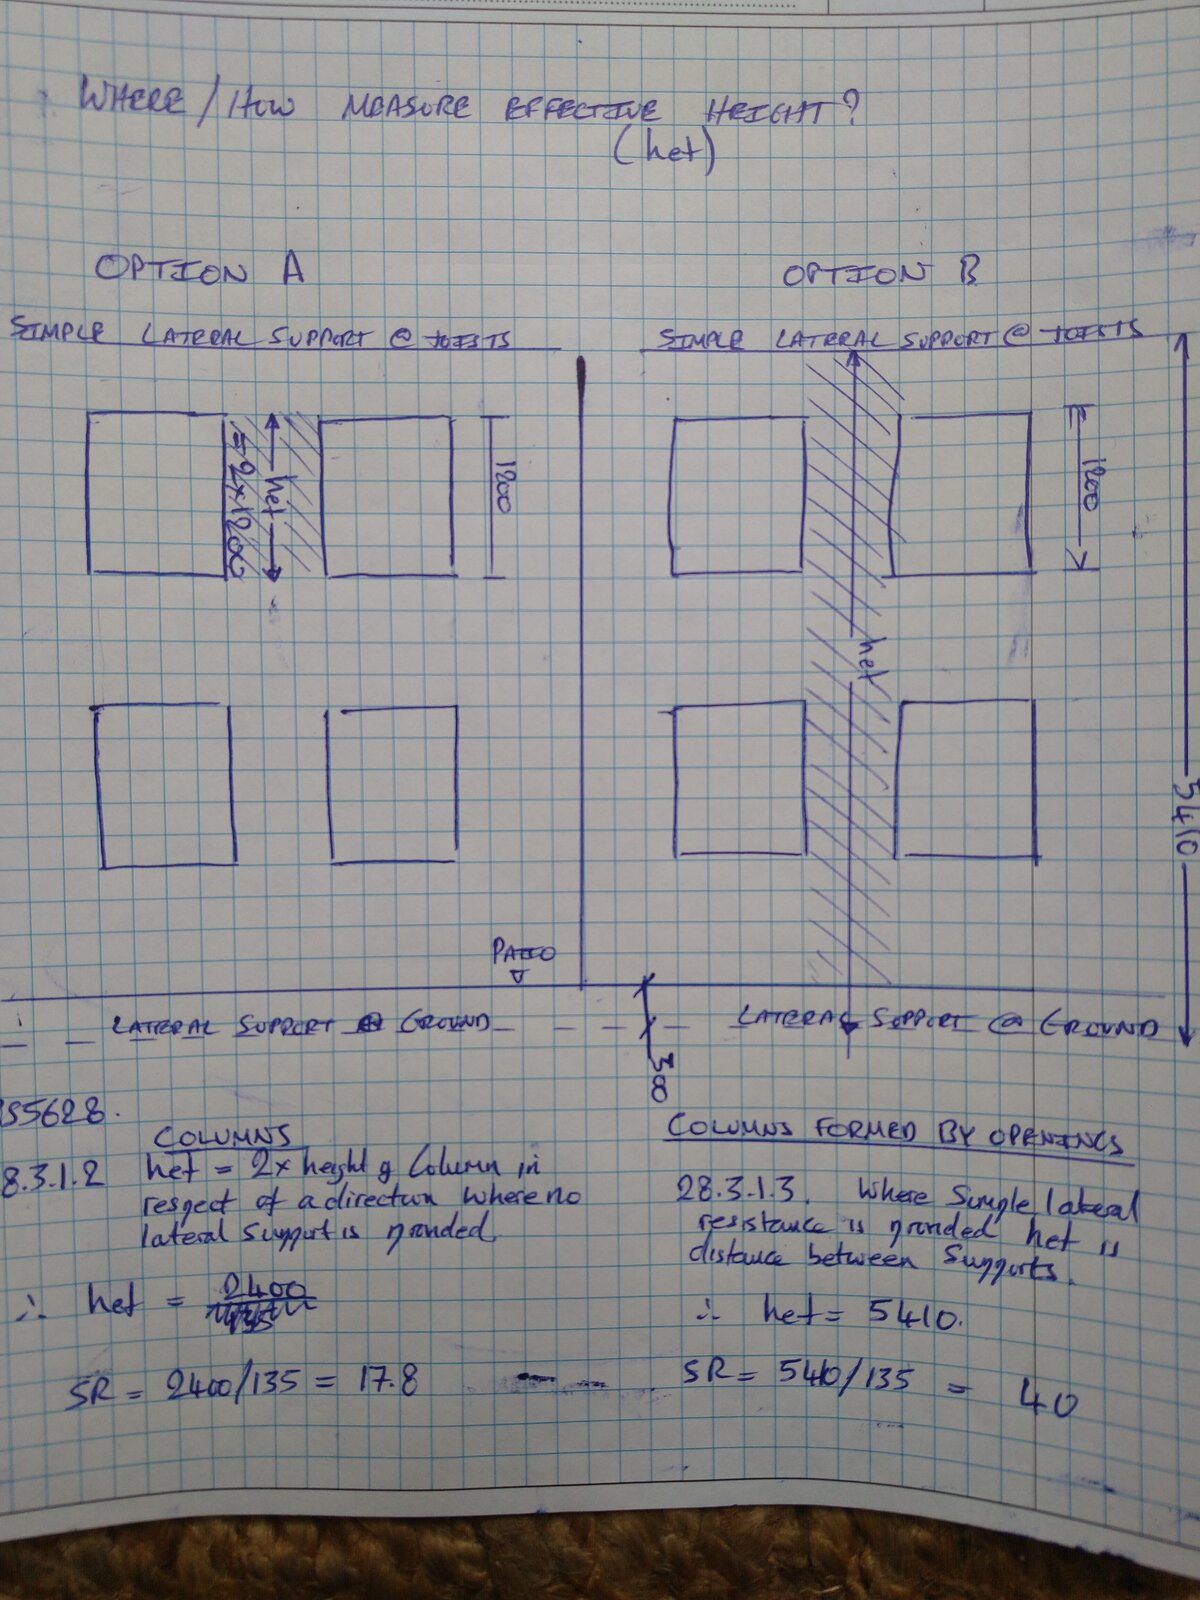 WHERE / HOW MEASURE EFFECTIVE HEIGHT?
(hef)
OPTION A
SIMPLE LATERAL SUPPORT @ JOISTS
hef
= 2x1200
1200
PATIO
LATERAL SUPPORT @ GROUND
OPTION B
SIMPLE LATERAL SUPPORT @ JOISTS
1200
hef
5410
LATERAL SUPPORT @ GROUND
308
S5628.
COLUMNS
8.3.1.2 hef = 2x height of Column in
respect of a direction where no
lateral support is provided
∴ hef = 2400
SR = 2400/135 = 17.8
COLUMNS FORMED BY OPENINGS
28.3.1.3. Where Simple lateral
resistance is provided hef is
distance between Supports.
∴ hef = 5410.
SR = 5410/135 = 40